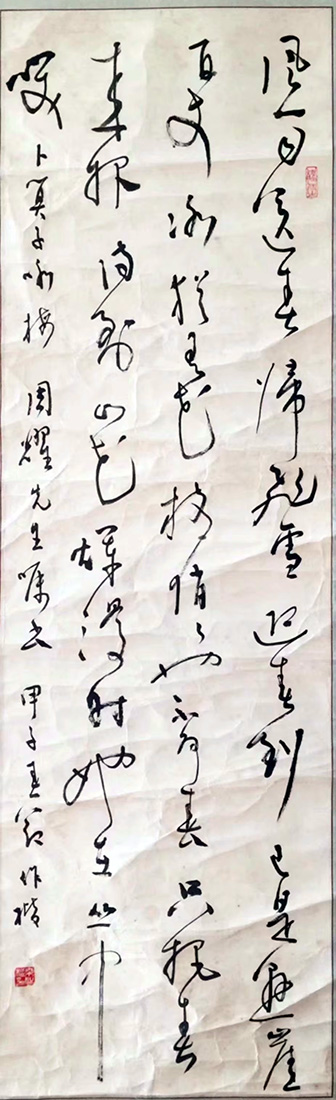 风雨送春歸飛雪迎春到已是懸崖
百丈冰猶有花枝俏俏也不爭春只把春
來報待到山花爛漫時她在丛中
笑 卜算子咏梅 周耀先生嘱书 甲子春 作楷